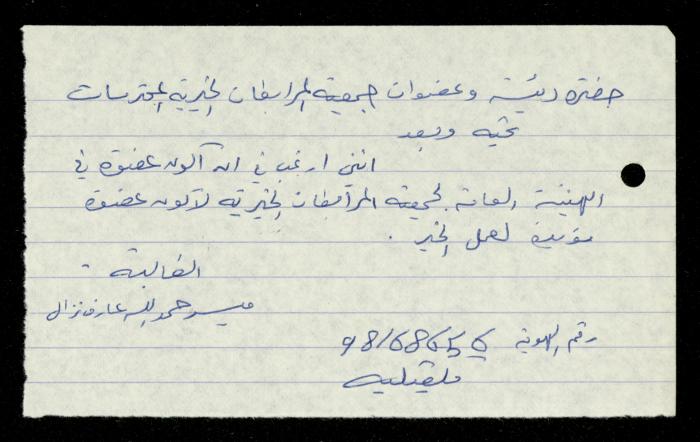 حضرة رئيسة وعضوات جمعية المرابطات الخيرية المحترمات
تحية وبعد
انني ارغب في ان اكون عضوة في
الهيئة العامة لجمعية المرابطات الخيرية لأكون عضوة
مؤيدة لعمل الخير .
الطالبة
ميسر حمد الله عارف نزال
رقم الهوية
قلقيلية